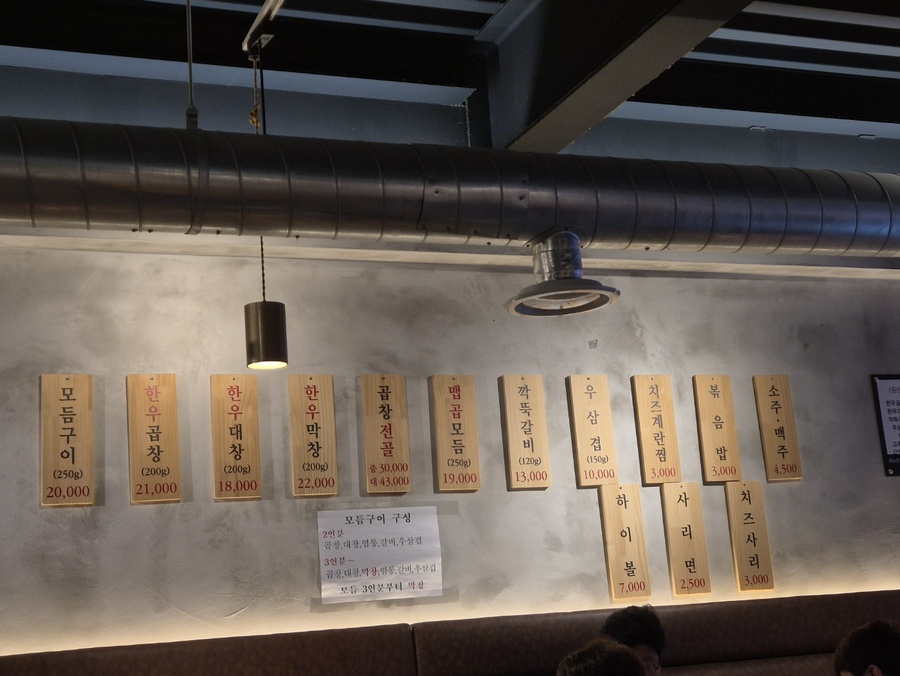 모듬구이
(250g)
20,000
한우곱창
(200g)
21,000
한우대창
(200g)
18,000
한우막창
(200g)
22,000
곱창전골
중 30,000
대 43,000
맵곱모듬
(250g)
19,000
깍뚝갈비
(120g)
13,000
우삼겹
(150g)
10,000
치즈계란찜
3,000
볶음밥
3,000
소주맥주
4,500
하이볼
7,000
사리면
2,500
치즈사리
3,000
모듬구이 구성
2인분
곱창,대창,염통,갈비,우삼겹
3인분~
곱창,대창,막창,염통,갈비,우삼겹
모듬 3인분부터 막창